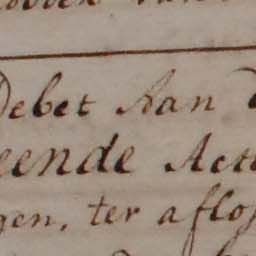 Debet Aan
eende Acte
gen, ter aflos